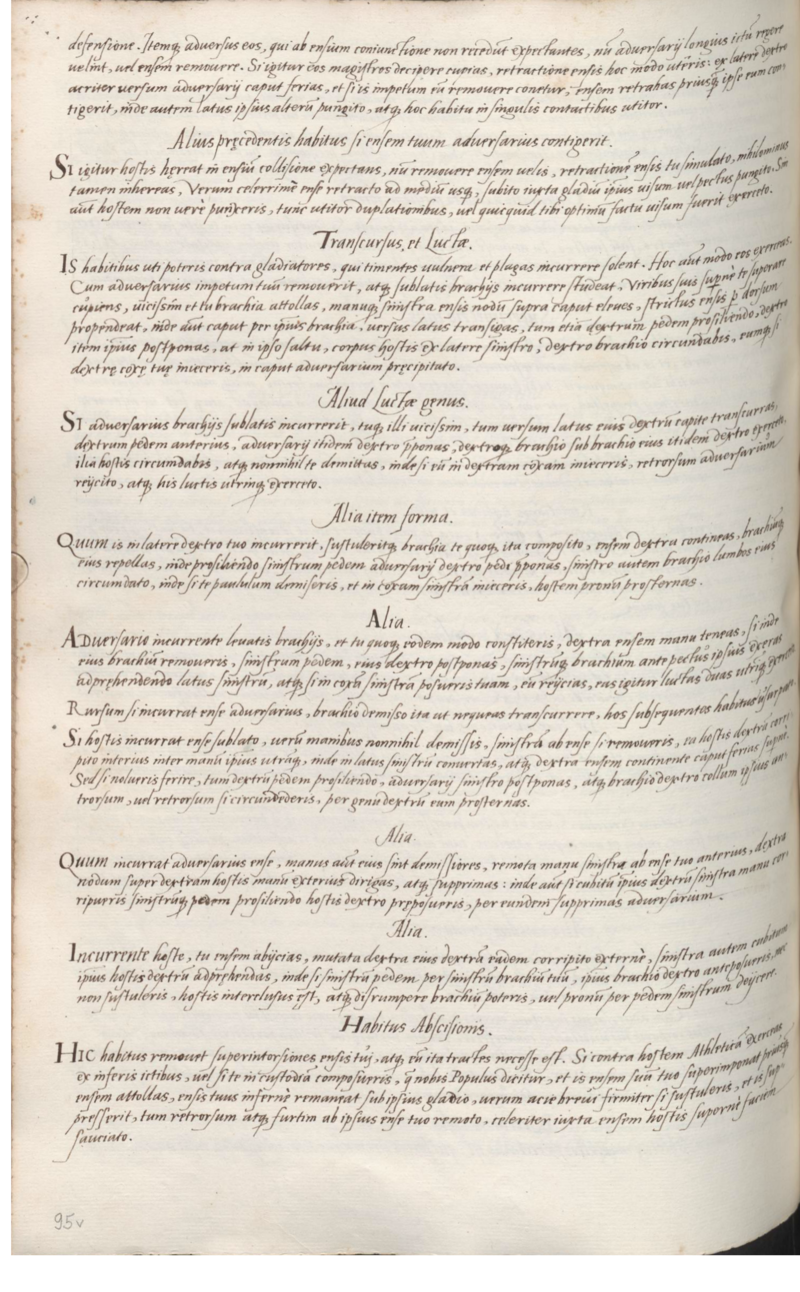 defensione. Itemq; adversus eos, qui ab ensium coniunctione non recedūt expectantes, nū adversarij longius ictū
velint, vel ensem removere. Si igitur eos magistros decipere cupias, retractione ensis hoc modo utēris: ex latere dextro
acriter versum adversarij caput ferias, et si is impetum eū removere conetur, ensem retrahas priusq̄ ipse eum con,
tigerit, inde autem latus ipsius alterū pungito, atq; hoc habitu in singulis contactibus utitor.
Alius pręcedentis habitus si ensem tuum adversarius contigerit.
SI igitur hostis hęreat in ensiū collisione expectans, nū removere ensem velis, retractionē ensis tu simulato, nihilominus
tamen inhereas, Verum celerrimè ense retracto ad mediū usq;, subito iuxta gladiū ipius visum vel pectus pungito. Sin
aūt hostem non verè punxeris, tunc utitor duplationibus, vel quicquid tibi optimū factu visum fuerit exerceto.
Transcursus, et Luctæ.
IS habitibus uti poteris contra gladiatores, qui timentes vulnera et plagas incurrere solent. Hoc aūt modo eos exerceas.
Cum adversarius impetum tuū removerit, atq; sublatis brachijs incurrere studeat. Viribus suis supernè te superare
cupiens, vicissim et tu brachia attollas, manuq; sinistra ensis nodū supra caput eleves, strictus ensis p̄ dorsum
propendeat, inde aūt caput per ipius brachia, versus latus transigas, tum etiā dextrum pedem prosiliendo, dextro
item ipius postponas, at in ipso saltu, corpus hostis ex latere sinistro, dextro brachio circundabis, eumq; si
dextrę coxę tuę inieceris, in caput adversarium pręcipitato.
Aliud Luctæ genus.
SI adversarius brachijs sublatis incurrerit, tuq; illi vicissim, tum versum latus eius dextrū capite transcurras,
dextrum pedem anterius, adversarij itidem dextro p̄ponas, dextroq; brachio sub brachio eius itidem dextro exerto,
ilia hostis circundabis, atq; nonnihil te demittas, inde si eū in dextram coxam inieceris, retrorsum adversarium
reijcito, atq; his luctis utrinq; exerceto.
Alia item forma.
QUUM is in latere dextro tuo incurrerit, sustuleritq; brachia te quoq; ita composito, ensem dextra contineas, brachiūq;
eius repellas, inde prosiliendo sinistrum pedem adversarij dextro pedi p̄ponas, sinistro autem brachio lumbos eius
circumdato, inde si te paululum demiseris, et in coxam sinistrā inieceris, hostem pronū prosternas.
Alia.
ADversario incurrente levatis brachijs, et tu quoq; eodem modo constiteris, dextra ensem manu teneas, si inde
eius brachiū removeris, sinistrum pedem, eius dextro postponas, sinistrūq; brachium ante pectus ipsius exeras
adpręhendendo latus sinistrū, atq; si in coxā sinistrā posueris tuam, eū reijcias, eas igitur luctas duas utrinq; exerceto.
Rursum si incurrat ense adversarius, brachio demisso ita ut nequeas transcurrere, hos subsequentes habitus usurpato.
Si hostis incurrat ense sublato, verū manibus nonnihil demissis, sinistrā ab ense si removeris, ea hostis dextrā corri,
pito interius inter manū ipius utraq;, inde in latus sinistrū convertas, atq; dextra ensem continente caput ferias supnè.
Sed si nolueris ferire, tum dextrū pedem prosiliendo, adversarij sinistro postponas, atq; brachio dextro collum ipsius an,
trorsum, vel retrorsum si circundederis, per genu dextrū eum prosternas.
Alia.
QUUM incurrat adversarius ense, manus aūt eius sint demissiores, remota manu sinistra ab ense tuo anterius, dextra
nodum super dextram hostis manū exterius dirigas, atq; supprimas: inde aūt si cubitū ipius dextrū sinistra manu cor,
ripueris sinistrūq; pedem prosiliendo hostis dextro pręposueris, per eundem supprimas adversarium.
Alia.
Incurrente hoste, tu ensem abijcias, mutata dextra eius dextrā eadem corripito externè, sinistra autem cubitum
ipius hostis dextrū adpręhendas, inde si sinistrū pedem per sinistrū brachiū tuū, ipius brachio dextro anteposueris,
non sustuleris, hostis interclusus est, atq; disrumpere brachiū poteris, vel pronū per pedem sinistrum deijcere.
Habitus Abscisionis.
HIC habitus removet superintorsiones ensis tui, atq; eū ita tractes necesse est. Si contra hostem Athleticā exerceas
ex inferis ictibus, vel si te in custodiā composueris, q̄ nobis Populus dicitur, et is ensem suū tuo superimponat priusq̄
ensem attollas, ensis tuus infernè remaneat sub ipsius gladio, verum acie brevi firmiter si sustuleris, et is sup,
presserit, tum retrorsum atq; furtim ab ipsius ense tuo remoto, celeriter iuxta ensem hostis supernè faciem
sauciato.
95v